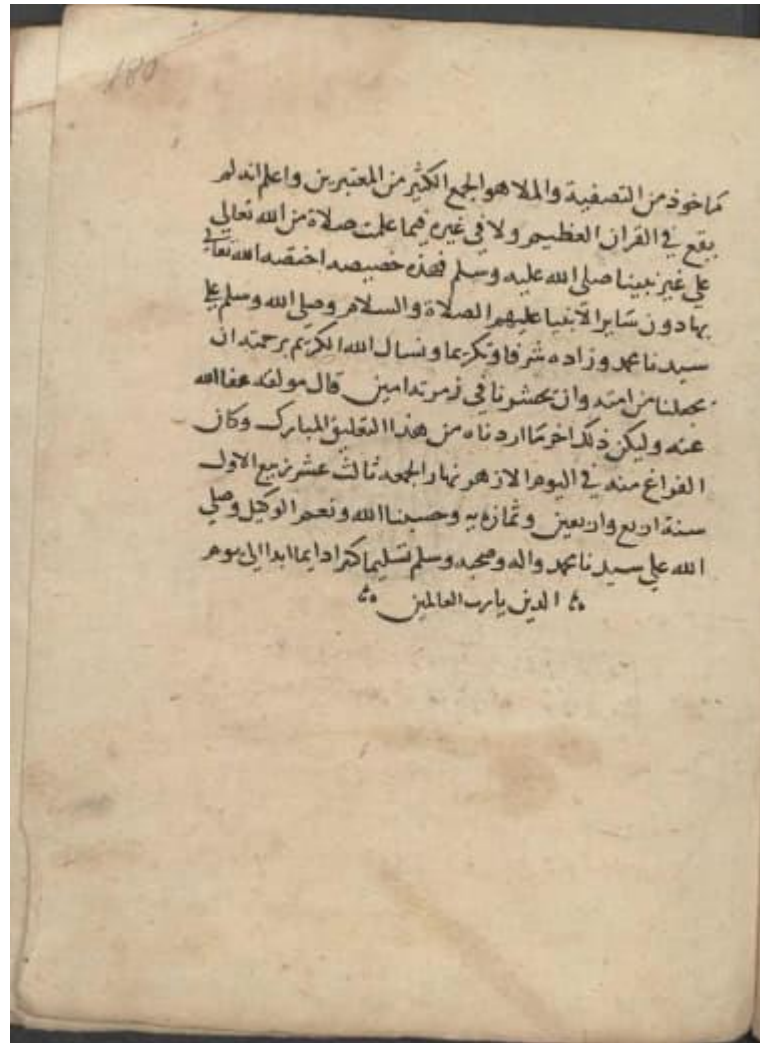 180
مأخوذ من التصفية والملا هو الجمع الكثير من المعتبرين واعلم انه لم
يقع في القران العظيم ولا في غيره فيما علمت صلاة من الله تعالي
علي غير نبينا صلي الله عليه وسلم فهذه خصيصه اختصه الله تعالي
بها دون ساير الانبيا عليهم الصلاة والسلام وصلي الله وسلم علي
سيدنا محمد وزاده شرفا وتكريما ونسال الله الكريم برحمته ان
يجعلنا من امته وان يحشرنا في زمرته امين قال مولفه عفا الله
عنه وليكن ذلك اخر ما اردناه من هذا التعليق المبارك وكان
الفراغ منه في اليوم الازهر نهار الجمعه ثالث عشر ربيع الاول
سنة اربع واربعين وثمانمايه وحسبنا الله ونعم الوكيل وصلي
الله علي سيدنا محمد واله وصحبه وسلم تسليما كثيرا دايما ابدا الي يوم
الدين يا رب العالمين